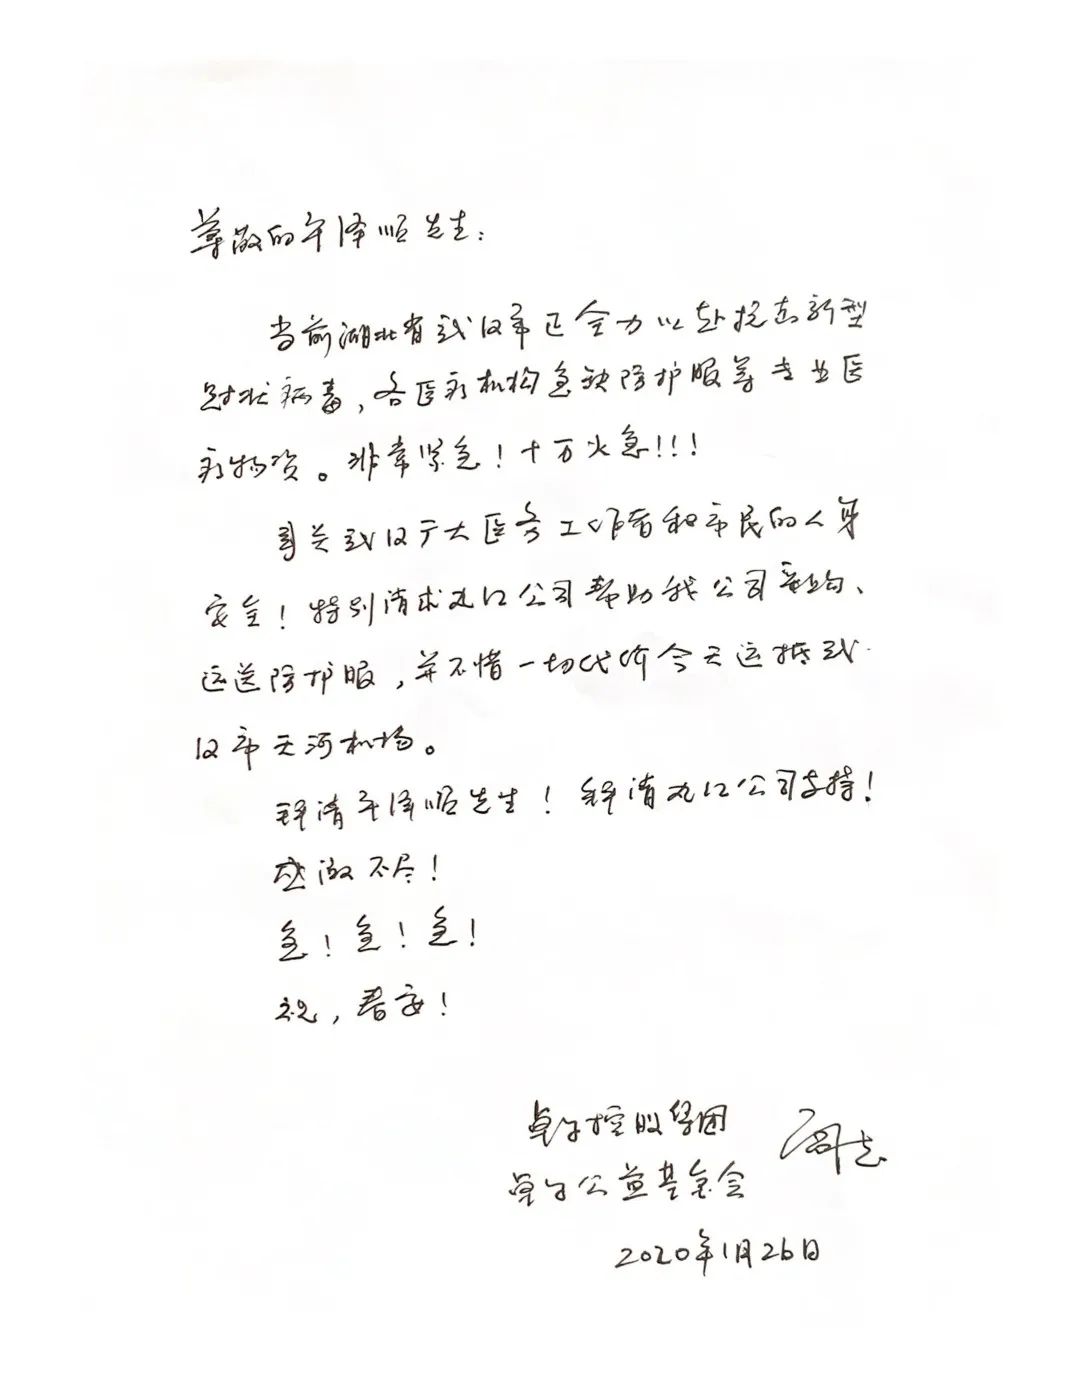 尊敬的午泽顺先生：
当前湖北省武汉市正全力以赴抗击新型
冠状病毒，各医疗机构急缺防护服等专业医
疗物资。非常紧急！十万火急！！！
事关武汉广大医务工作者和市民的人身
安全！特别请求丸江公司帮助我公司采购、
运送防护服，并不惜一切代价今天运抵武
汉市天河机场。
拜请午泽顺先生！拜请丸江公司支持！
感激不尽！
急！急！急！
祝，春安！
卓尔控股集团
卓尔公益基金会
2020年1月26日